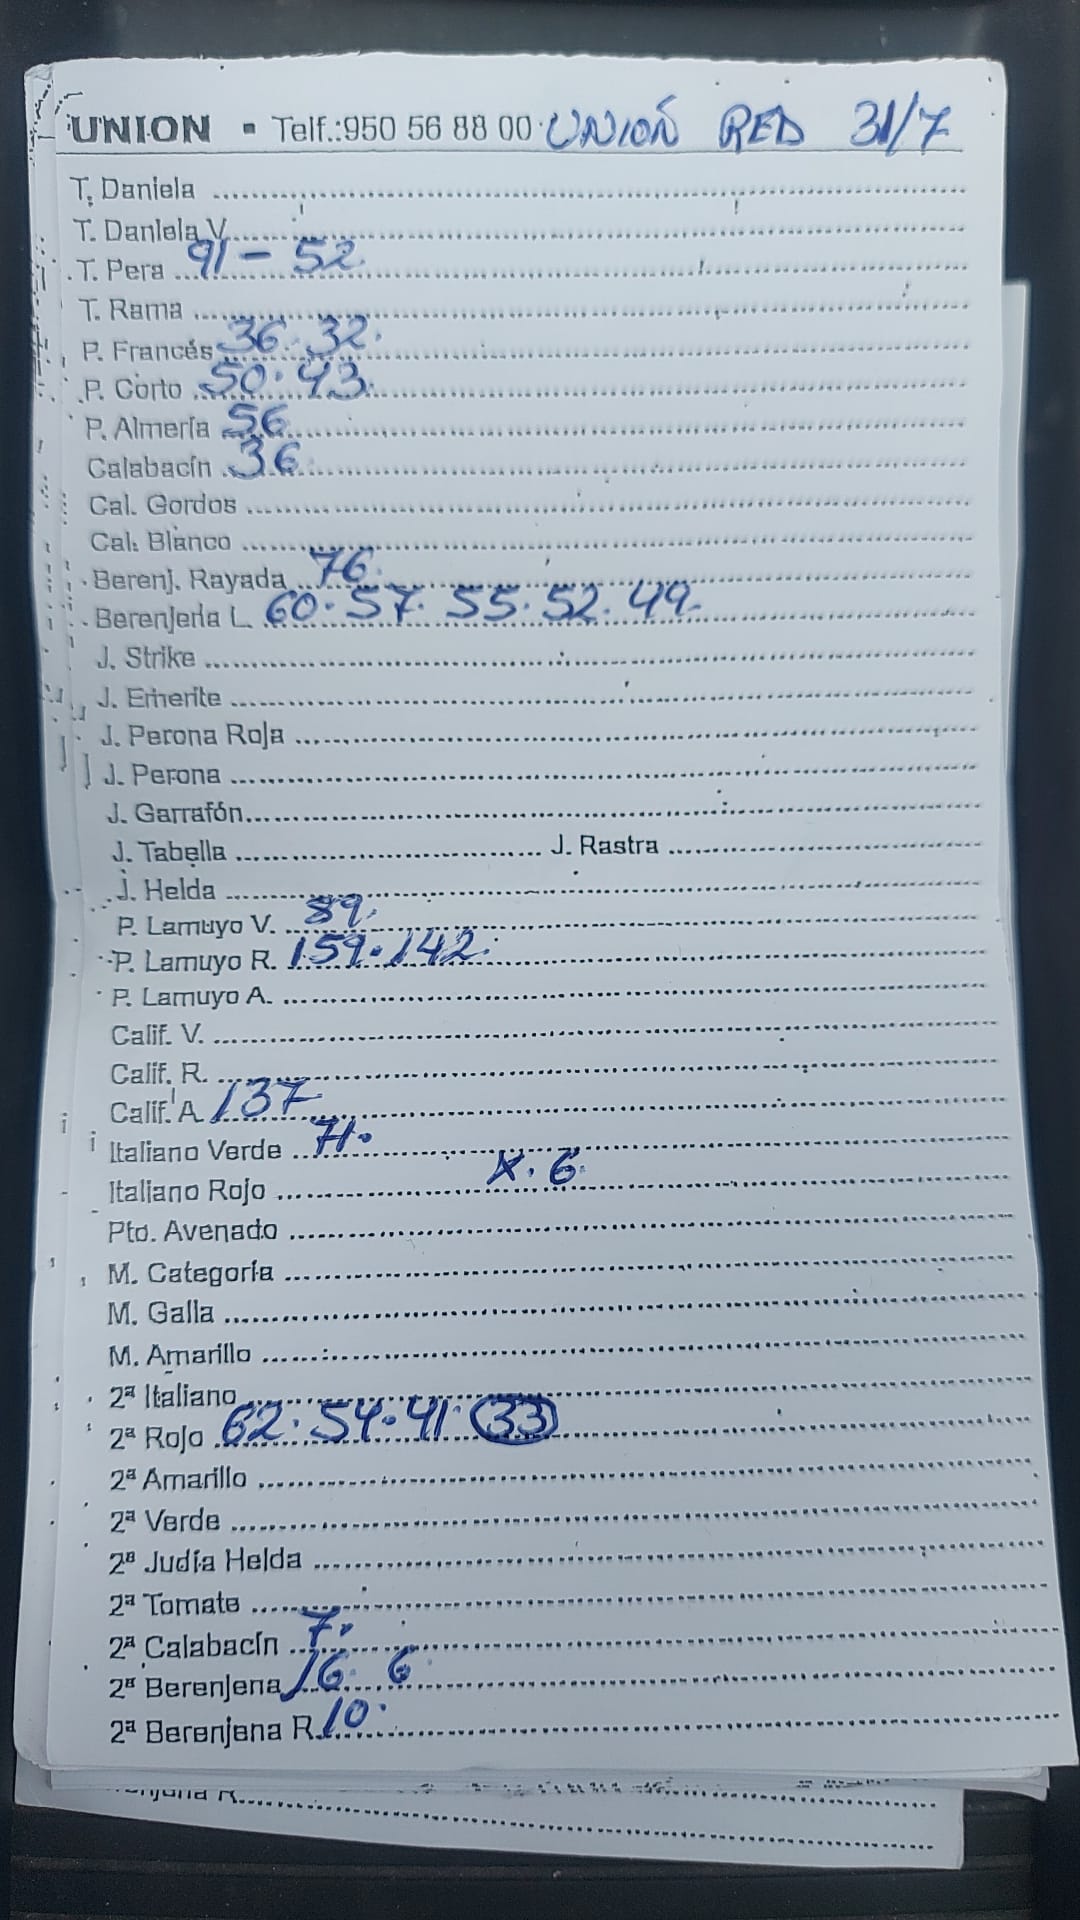 UNION ▪ Telf.:950 56 88 00 UNIÓN RED 31/7
T. Daniela ........................
T. Daniela V........................
T. Pera ... 91 - 52.
T. Rama ........................
P. Francés 36. 32.
P. Corto 50. 43.
P. Almería 56
Calabacín 36
Cal. Gordos ........................
Cal. Blanco ........................
Berenj. Rayada 76.
Berenjena L. 60. 57. 55. 52. 49.
J. Strike ........................
J. Emerite ........................
J. Perona Roja ........................
J. Perona ........................
J. Garrafón........................
J. Tabella ........................ J. Rastra ........................
J. Helda ........................
P. Lamuyo V. 89.
P. Lamuyo R. 159. 142.
P. Lamuyo A. ........................
Calif. V. ........................
Calif. R. ........................
Calif. A. 137
Italiano Verde 71. X. 6.
Italiano Rojo ........................
Pto. Avenado ........................
M. Categoría ........................
M. Galia ........................
M. Amarillo ........................
2ª Italiano ........................
2ª Rojo 62. 54. 41. 33
2ª Amarillo ........................
2ª Verde ........................
2ª Judía Helda ........................
2ª Tomate ........................
2ª Calabacín 7.
2ª Berenjena 16. 6.
2ª Berenjena R. 10.